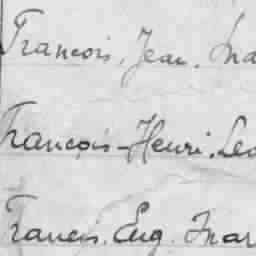 Francois. Jean. Ma
François-Henri. Leo
Francis. Eug. Mar